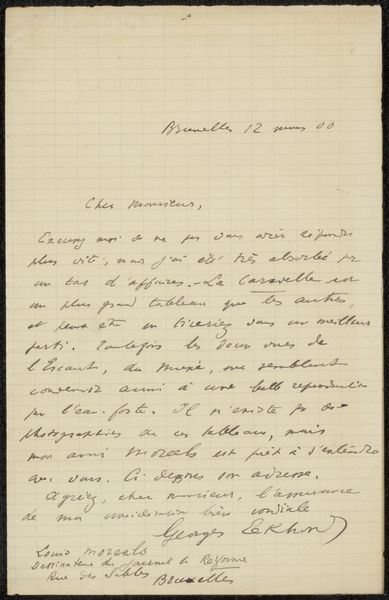 Bruxelles 12 mars 00
Cher Monsieur,
Excusez moi de ne pas vous avoir répondu
plus vite, mais j'ai été très absorbé par
un tas d'affaires. La Caravelle est
un plus grand tableau que les autres,
et peut être en tireriez vous un meilleur
parti. Toutefois les deux vues de
l'Escaut, du musée, me semblent
convenir aussi à une belle reproduction
par l'eau-forte. Il n'existe pas de
photographies de ces tableaux, mais
mon ami Moreels est prêt à s'entendre
avec vous. Ci dessous son adresse.
Agréez, cher monsieur, l'assurance
de ma considération très cordiale
Georges Eekhoud
Louis Moreels
Dessinateur du journal la Réforme
Rue des Sables
Bruxelles